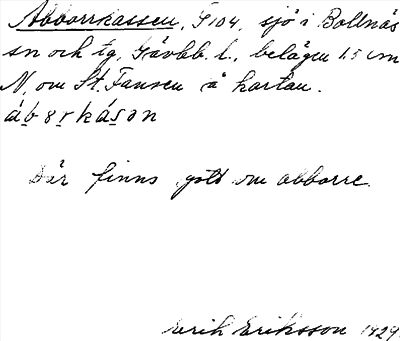 Abborrkassen, G 104, sjö i Bollnäs
sn och tg, Gävbb. l., belägen 1.5 cm
N. om St. Fansen å kartan.
áb8rkásən
Där finns gott om abborre.
Erik Eriksson 1929.